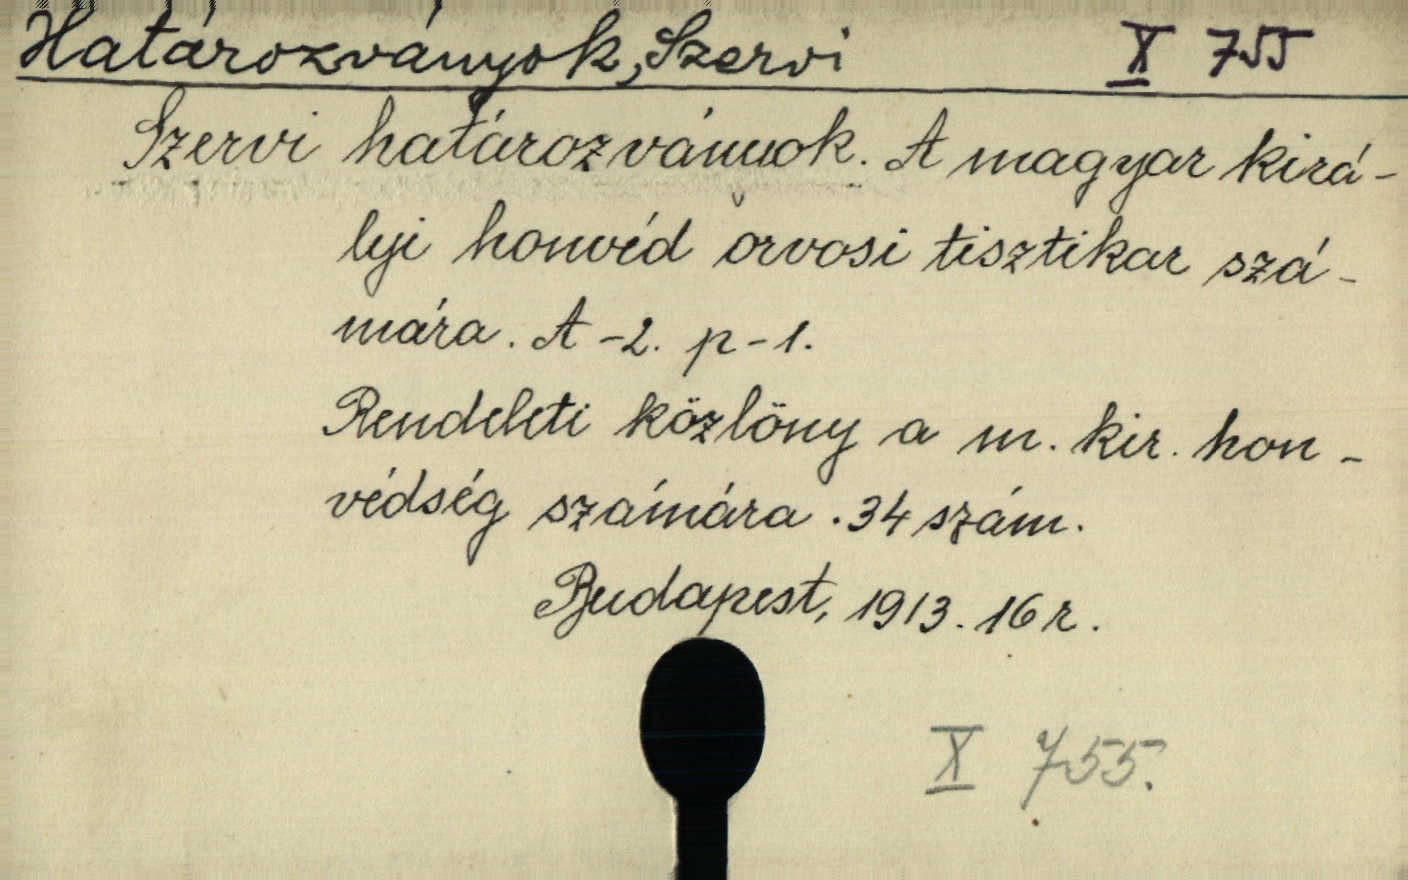 Határozványok, Szervi X 755
Szervi határozványok. A magyar kirá-
lyi honvéd orvosi tisztikar szá-
mára. A-2. p-1.
Rendeleti közlöny a m. kir. hon-
védség számára. 34 szám.
Budapest, 1913. 16 r.
X 755.